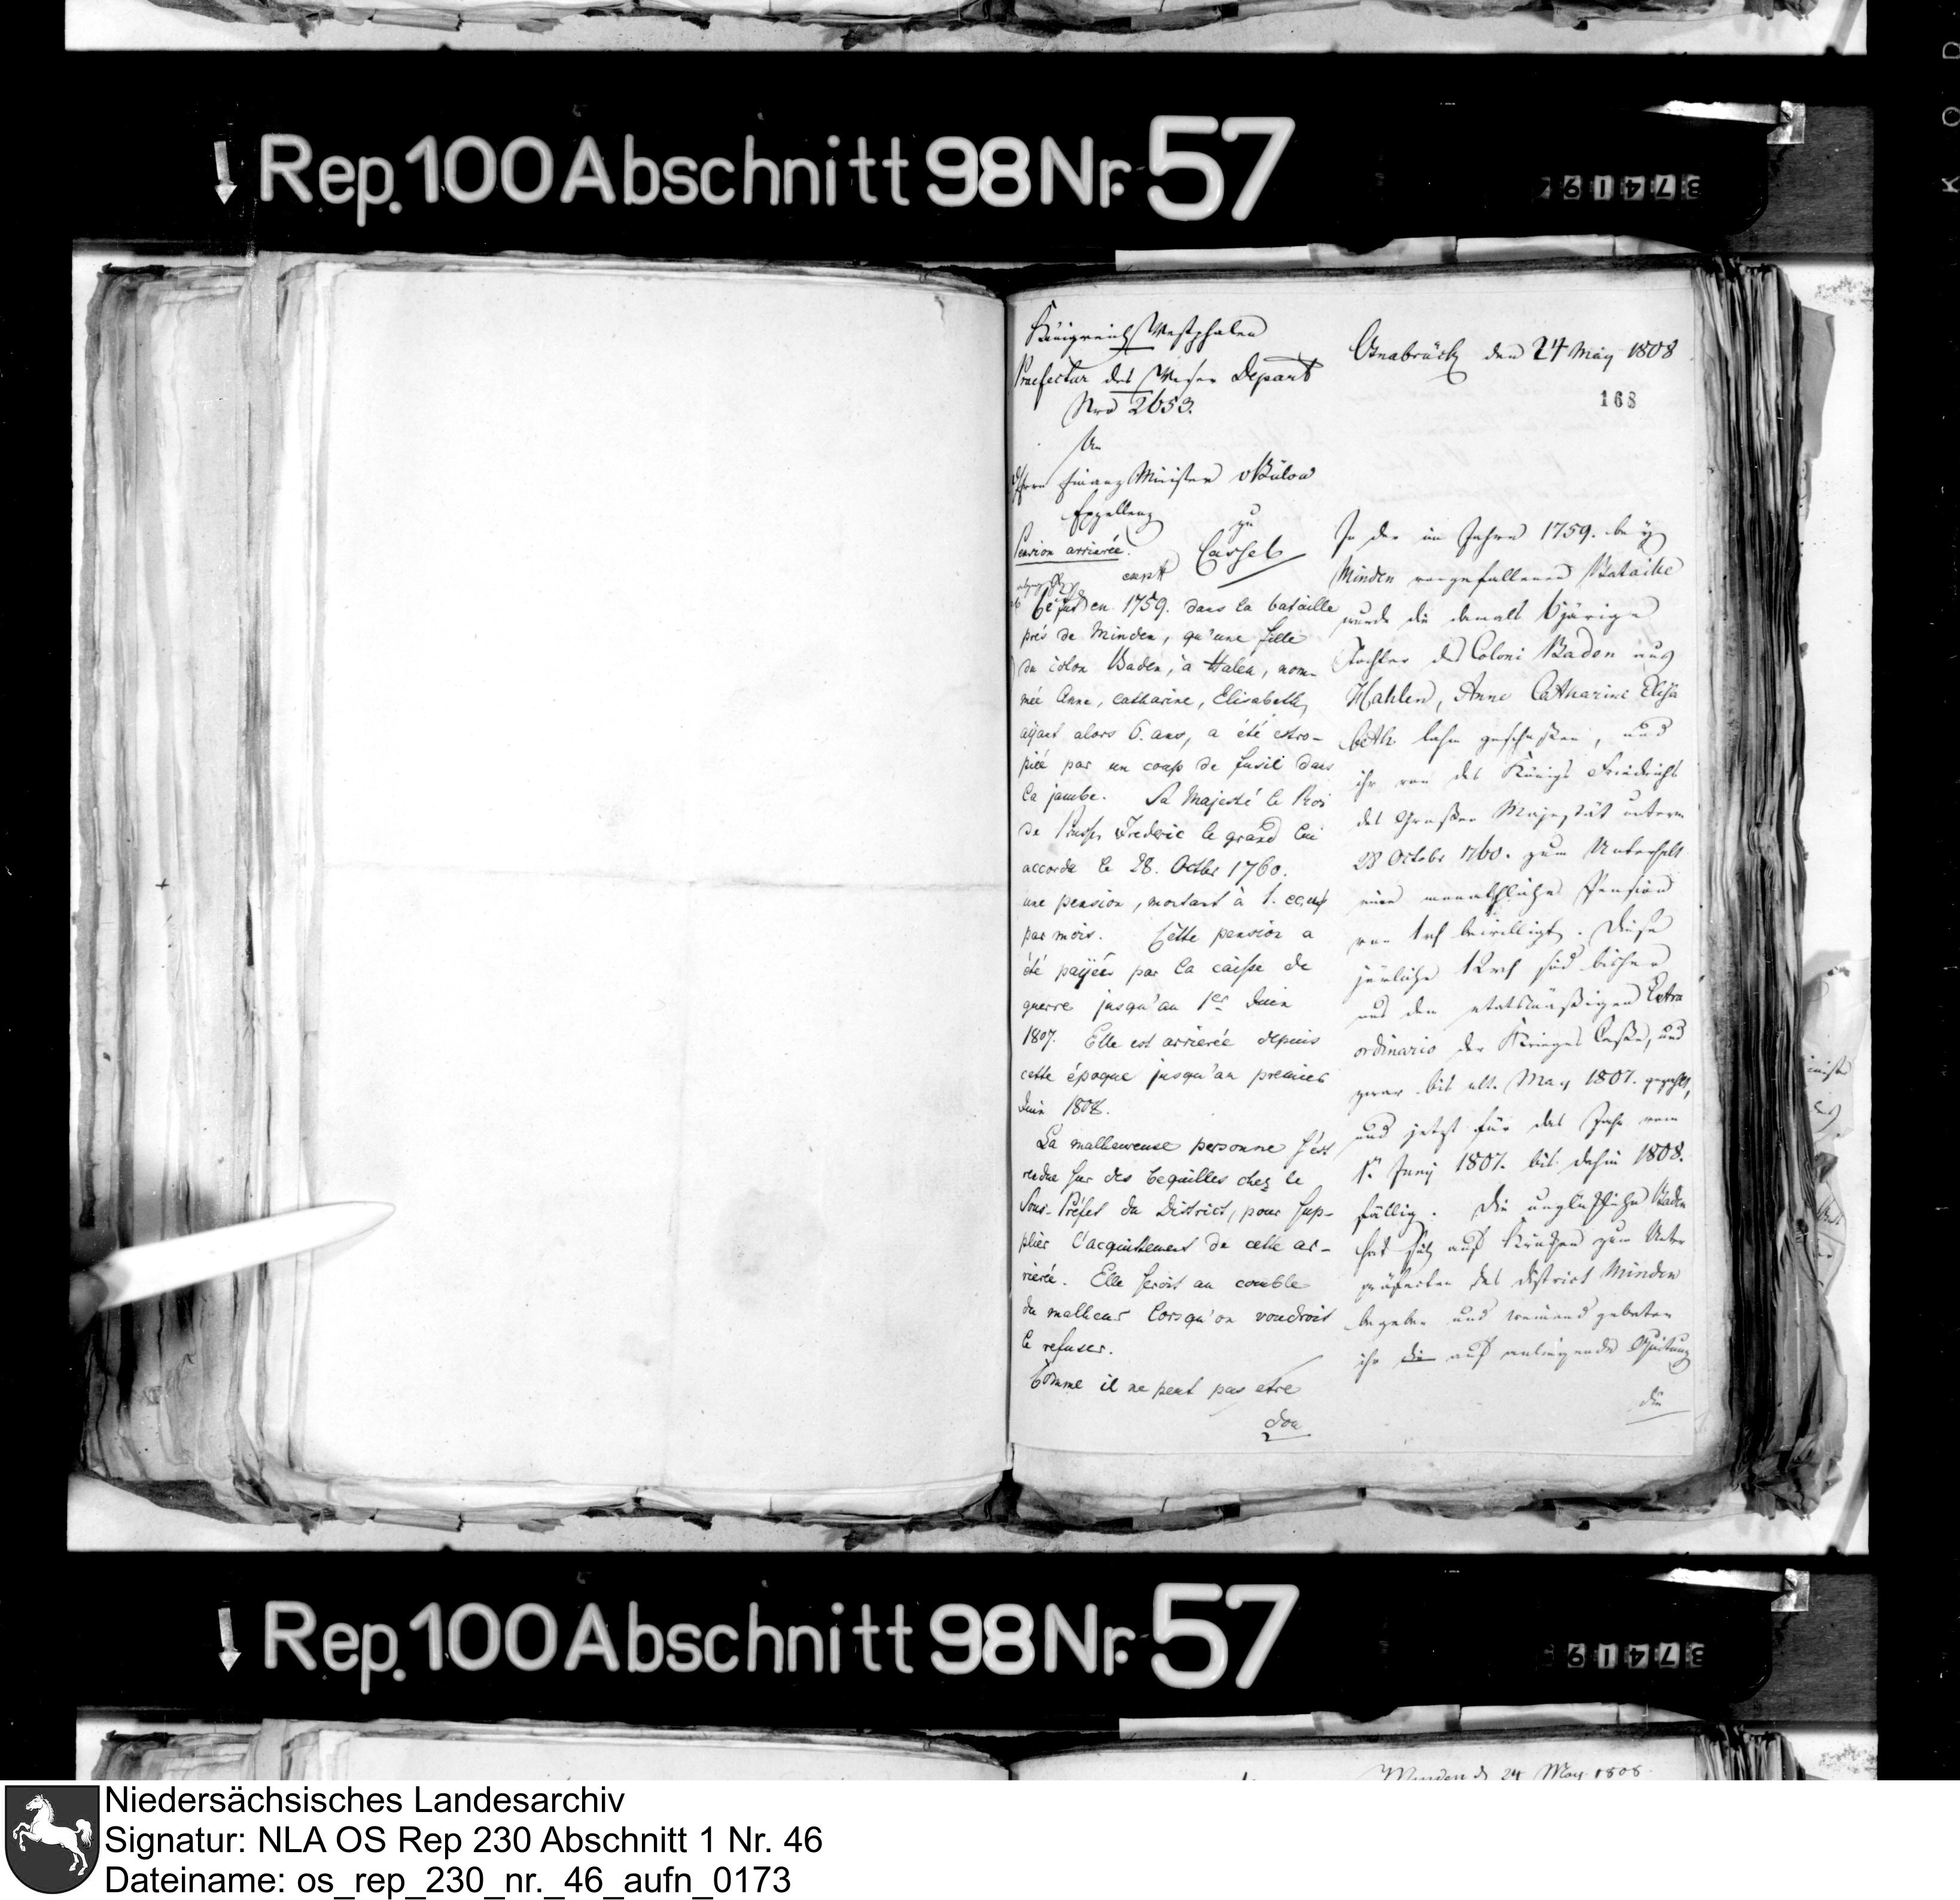 Rep. 100 Abschnitt 98 Nr. 57
Königreich Westphalen
Praefectur des Weser Depart
Nro 2653.
An
Herrn Finanz Minister v Bülow
Excellenz
zu
Cassel
Osnabrück den 24 May 1808
168
Pension arrierée.
C'éstoit en 1759. dans la bataille
prés de Minden, qu'une fille
du colon Baden, à Halen, nom-
mée Anne, Catharine, Elisabeth,
aÿant alors 6. ans, a été estro-
piée par un coup de fusil dans
la jambe. Sa Majesté le Roi
de Prusse, Frederic le grand lui
accorda le 28. Octbr 1760.
une pension, montant à 1. ecu
par mois. Cette pension a
été paÿée par la caisse de
guerre jusqu'au 1er Juin
1807. Elle est arrierée depuis
cette époque jusqu'au premier
Juin 1808.
La malheureuse personne s'est
rendue sur des bequilles chez le
Sous-Préfet du District, pour sup-
plier l'acquittement de cette ar-
rierée. Elle seroit au comble
du malheur lorsqu'on voudroit
le refuser.
Comme il ne peut pas etre
dou
In der im Jahre 1759. bey
Minden vorgefallenen Bataille
wurde die damals 6järige
Tochter des Coloni Baden aus
Hahlen, Anne Catharine Elisa
beth lahm geschossen, und
ihr von des Königs Friedrichs
des Grossen Majestät unterm
28 Octobr 1760. zum Unterhalt
eine monathliche Pension
von 1 rt bewilligt. Diese
järliche 12 rt sind bisher
aus dem etatsmäßigen Extra
ordinario der Krieges Casse, und
zwar bis ult. May 1807. gezahlt,
und jetzt für das Jahr vom
1n Juny 1807. bis dahin 1808.
fällig. Die unglückliche Baden
hat sich auf Krücken zum Unter
präfecten des District Minden
begeben und weinend gebeten
ihr die auf anliegende Quitung
die
Rep. 100 Abschnitt 98 Nr. 57
Minden d 24 May 1808.
Niedersächsisches Landesarchiv
Signatur: NLA OS Rep 230 Abschnitt 1 Nr. 46
Dateiname: os_rep_230_nr._46_aufn_0173